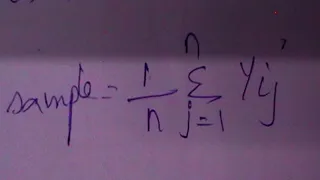 sample = 1/n Σ_{j=1}^{n} Yij